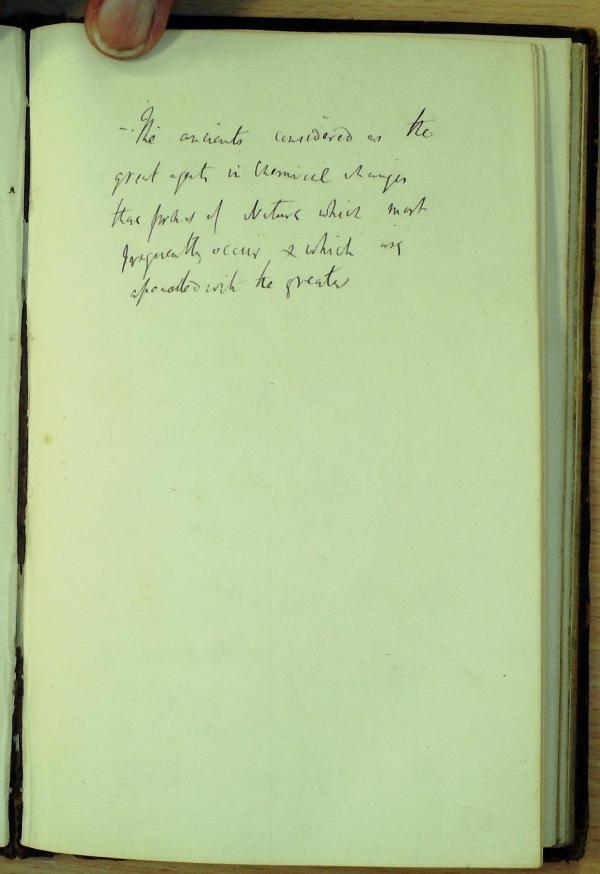 - The ancients considered as the
great agents in Chemical changes
those powers of Nature which most
frequently occur & which are
with the greater